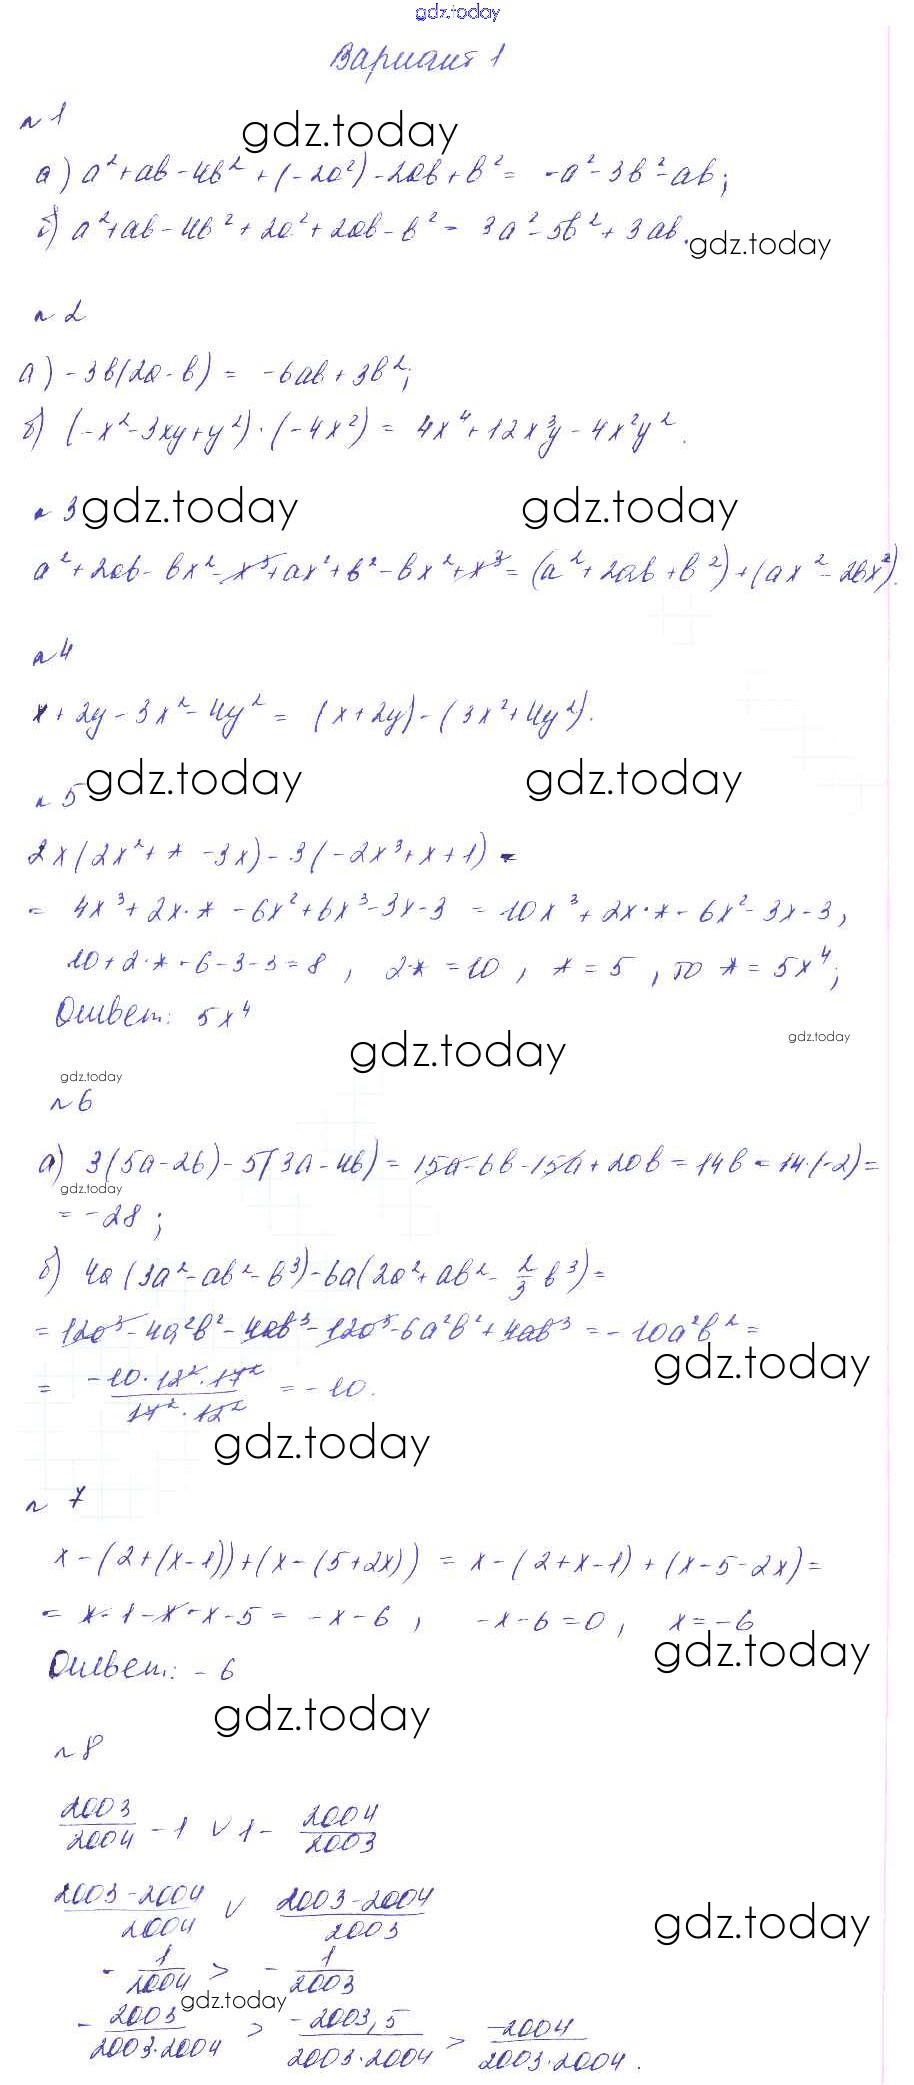 gdz.today
Вариант 1
№1
gdz.today
а) a²+ab-4b²+(-2a²)-2ab+b² = -a²-3b²-ab;
б) a²+ab-4b²+2a²+2ab-b² = 3a²-5b²+3ab.
gdz.today
№2
а) -3b(2a-b) = -6ab+3b²;
б) (-x²-3xy+y²)·(-4x²) = 4x⁴+12x³y-4x²y².
№3 gdz.today gdz.today
a²+2ab-bx²-x³+ax²+b²-bx²+x³=(a²+2ab+b²)+(ax²-2bx²).
№4
x+2y-3x²-4y² = (x+2y)-(3x²+4y²).
№5 gdz.today gdz.today
2x(2x²+*-3x)-3(-2x³+x+1)=
= 4x³+2x·*-6x²+6x³-3x-3 = 10x³+2x·*-6x²-3x-3,
10+2·*-6-3-3=8, 2·*=10, *=5, то *=5x⁴;
Ответ: 5x⁴
gdz.today gdz.today
gdz.today
№6
а) 3(5a-2b)-5(3a-4b)=15a-6b-15a+20b=14b=14·(-2)=
gdz.today
=-28;
б) 4a(3a²-ab²-b³)-6a(2a²+ab²-2/3 b³)=
=12a³-4a²b²-4ab³-12a³-6a²b²+4ab³=-10a²b²=
gdz.today
= -10·12²·17²/17²·12² = -10.
gdz.today
№ 7
x-(2+(x-1))+(x-(5+2x)) = x-(2+x-1)+(x-5-2x)=
= x-1-x-x-5 = -x-6, -x-6=0, x=-6
gdz.today
Ответ: -6
gdz.today
№8
2003/2004 -1 ∨ 1- 2004/2003
2003-2004/2004 ∨ 2003-2004/2003
gdz.today
- 1/2004 > - 1/2003
gdz.today
- 2003/2003·2004 > -2003,5/2003·2004 > -2004/2003·2004.